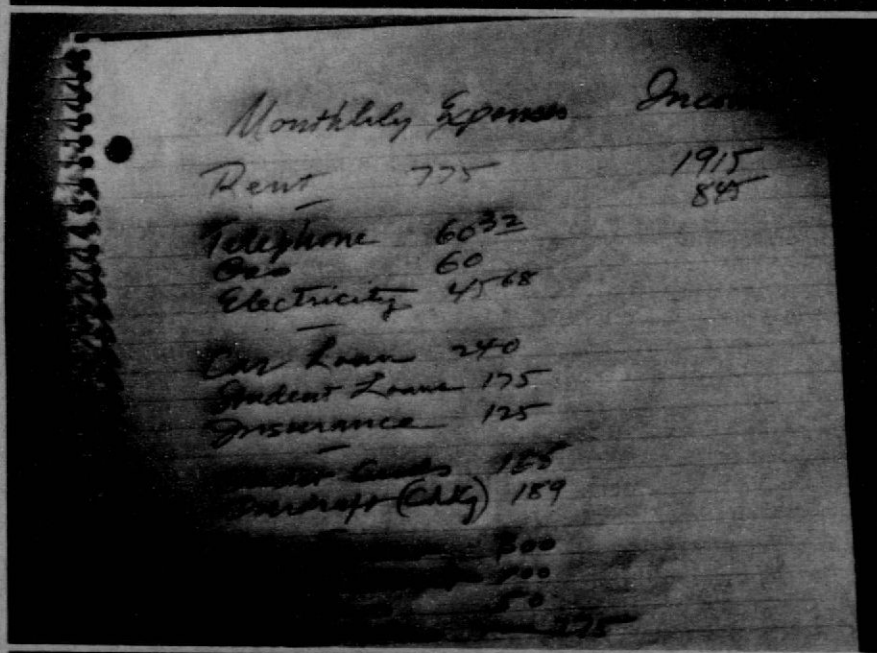 Monthlily Expenses Inco
Rent 775 1915
845
Telephone 60 32
Gas 60
Electricity 45 68
Car Loan 240
Student Loans 175
Insurance 125
Cards 165
Overdraft (Chkg) 189
300
50
175